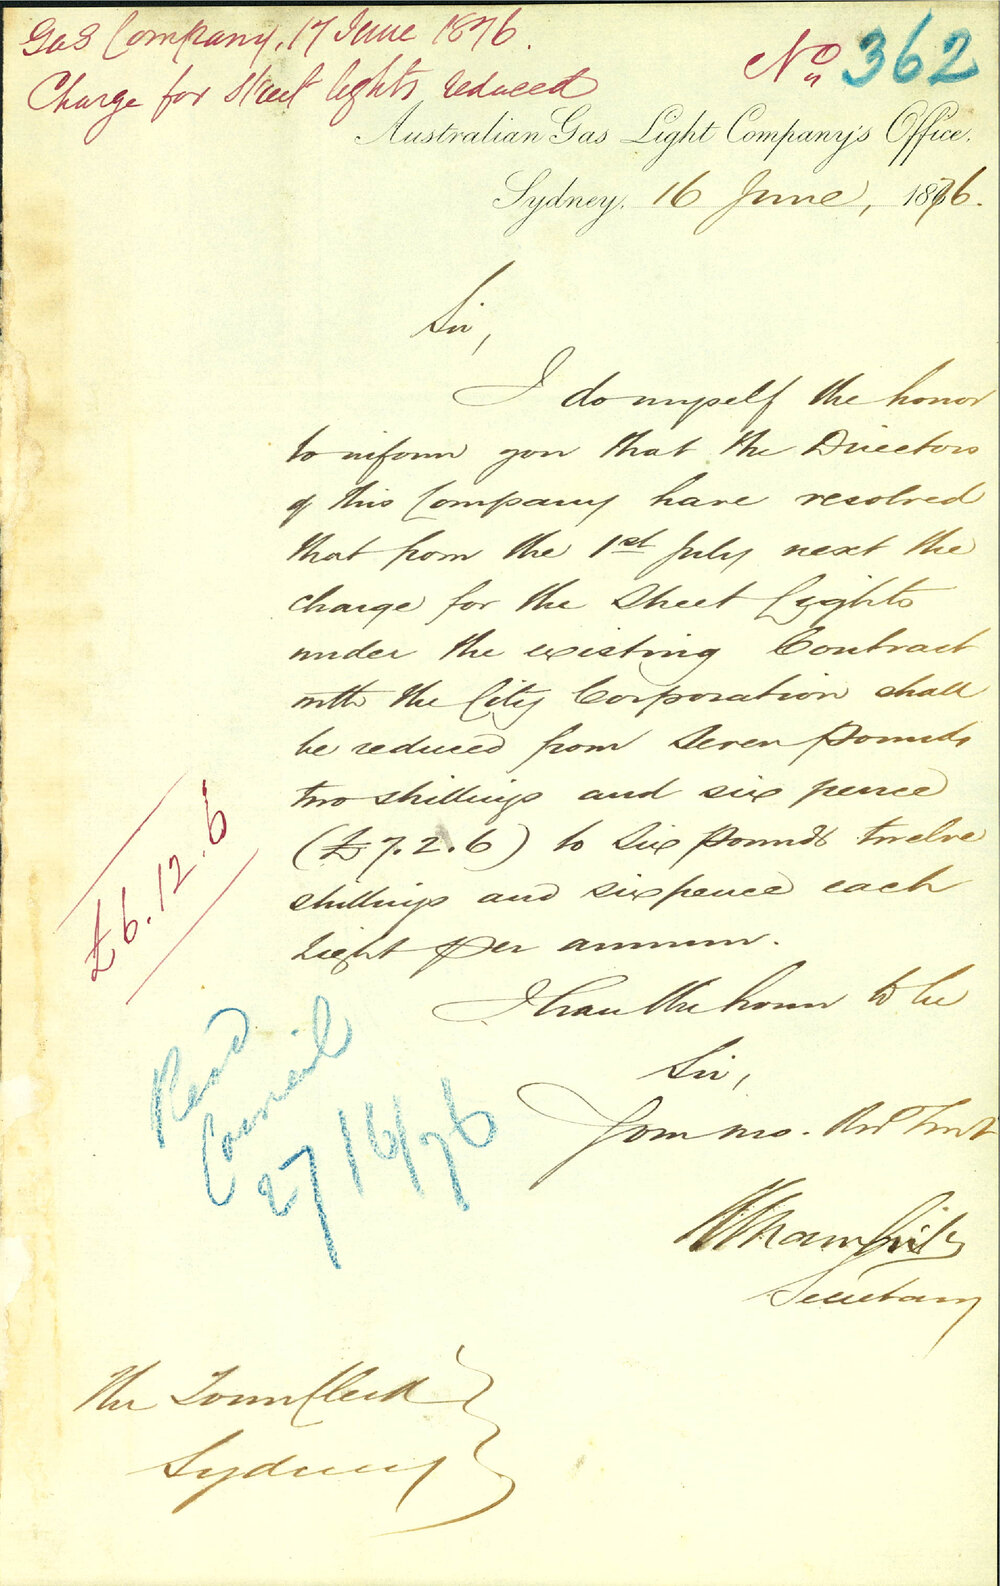 Gas Company, 17 June 1876.
Charge for Street lights reduced
No 362
Australian Gas Light Company's Office.
Sydney. 16 June, 1876.
Sir,
I do myself the honor
to inform you that the Directors
of this Company have resolved
that from the 1st July next the
charge for the Street Lights
under the existing Contract
with the City Corporation shall
be reduced from Seven Pounds
two shillings and six pence
(£7.2.6) to Six Pounds twelve
shillings and sixpence each
Light per annum.
£6.12.6
I have the honor to be
Sir,
Your mo. Obd Servt
Secretary
Read
Council
27/6/76
The Town Clerk
Sydney